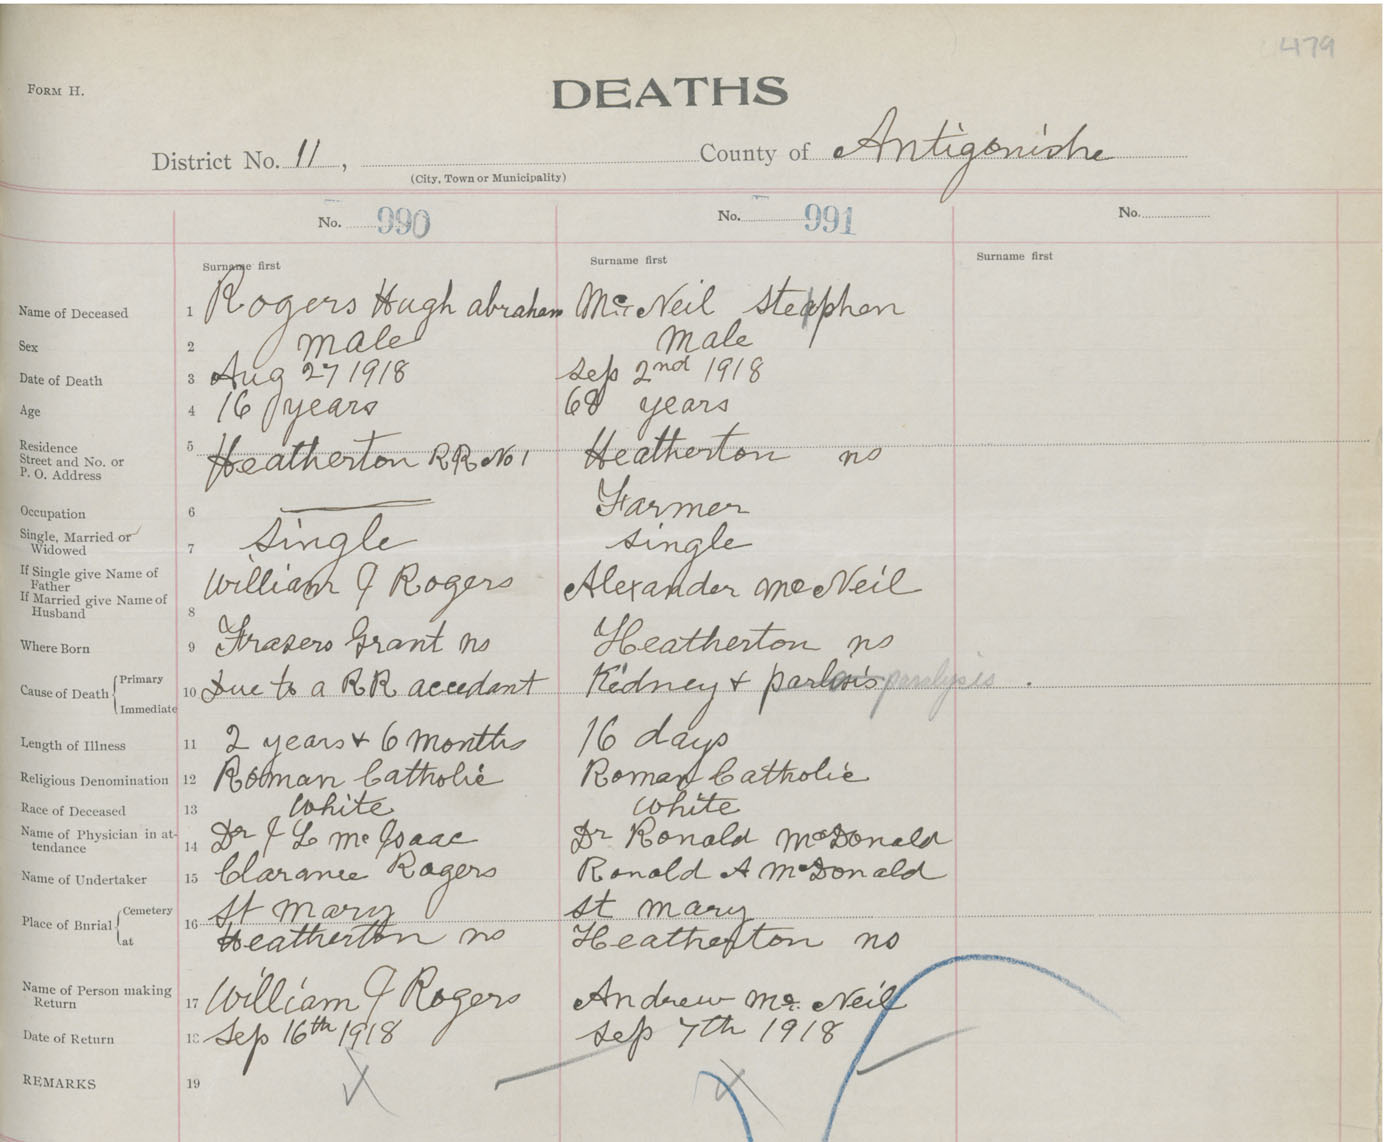 479
FORM H.
DEATHS
District No. 11, County of Antigonishe
(City, Town or Municipality)
No. 990 No. 991 No.
Surname first Surname first Surname first
Name of Deceased 1 Rogers Hugh abraham McNeil Steaphen
Sex 2 male Male
Date of Death 3 Aug 27 1918 Sep 2nd 1918
Age 4 16 years 68 years
Residence 5
Street and No. or Heatherton RR No 1 Heatherton ns
P. O. Address
Occupation 6 Farmer
Single, Married or
Widowed 7 single single
If Single give Name of
Father William J Rogers Alexander McNeil
If Married give Name of
Husband 8
Where Born 9 Frasers Grant ns Heatherton ns
Primary
Cause of Death 10 Due to a RR accedant Kedney + parlosis paralysis
Immediate
Length of Illness 11 2 years + 6 months 16 days
Religious Denomination 12 Roman Catholic Roman Catholic
Race of Deceased 13 White White
Name of Physician in at-
tendance 14 Dr J L McIsaac Dr Ronald McDonald
Name of Undertaker 15 Clarance Rogers Ronald A McDonald
Cemetery St mary St mary
Place of Burial 16
at Heatherton ns Heatherton ns
Name of Person making
Return 17 William J Rogers Andrew McNeil
Date of Return 18 Sep 16th 1918 Sep 7th 1918
REMARKS 19